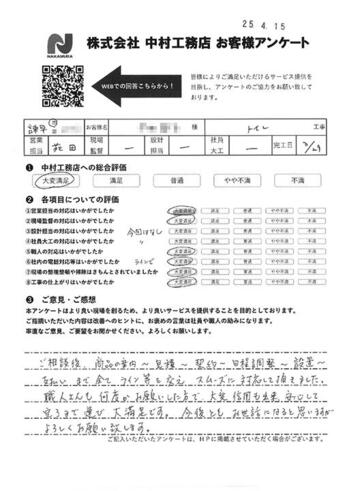 25.4.15
N
NAKAMURA
株式会社 中村工務店 お客様アンケート
WEBでの回答こちらから!
皆様によりご満足いただけるサービス提供を
目指し、アンケートのご協力をお願い致して
おります。
諫早 お客様名 様 トイレ 工事
営業担当 荘田 現場監督 ー 設計担当 ー 社員大工 ー 完工日
❶ 中村工務店への総合評価
大変満足 満足 普通 やや不満 不満
❷ 各項目についての評価
①営業担当の対応はいかがでしたか 大変満足 満足 普通 やや不満 不満
②現場監督の対応はいかがでしたか 大変満足 満足 普通 やや不満 不満
③設計担当の対応はいかがでしたか 今回はなし 大変満足 満足 普通 やや不満 不満
④社員大工の対応はいかがでしたか 〃 大変満足 満足 普通 やや不満 不満
⑤職人の対応はいかがでしたか 大変満足 満足 普通 やや不満 不満
⑥社内の電話対応等はいかがでしたか ラインで 大変満足 満足 普通 やや不満 不満
⑦現場の整理整頓や掃除はきちんとされていましたか 大変満足 満足 普通 やや不満 不満
⑧工事の仕上がりはいかがでしたか 大変満足 満足 普通 やや不満 不満
❸ ご意見・ご感想
本アンケートはより良い現場を創るため、より良いサービスを提供することを目的としております。
ご指摘いただいた内容は改善へのヒントに、お褒めの言葉は社員や職人の励みになります。
率直なご意見、ご要望をお聞かせください。よろしくお願いします。
ご相談後、商品の案内~見積~契約~日程調整~設置~
支払いまで全てライン等で交え、スムーズに対応して頂きました。
職人さんも何度かお願いした方で、大変信用も出来、安心して
完了まで運び大満足です。今後ともお世話になると思いますが
よろしくお願い致します。
ご記入いただいたアンケートは、HPに掲載させていただく場合がございます。